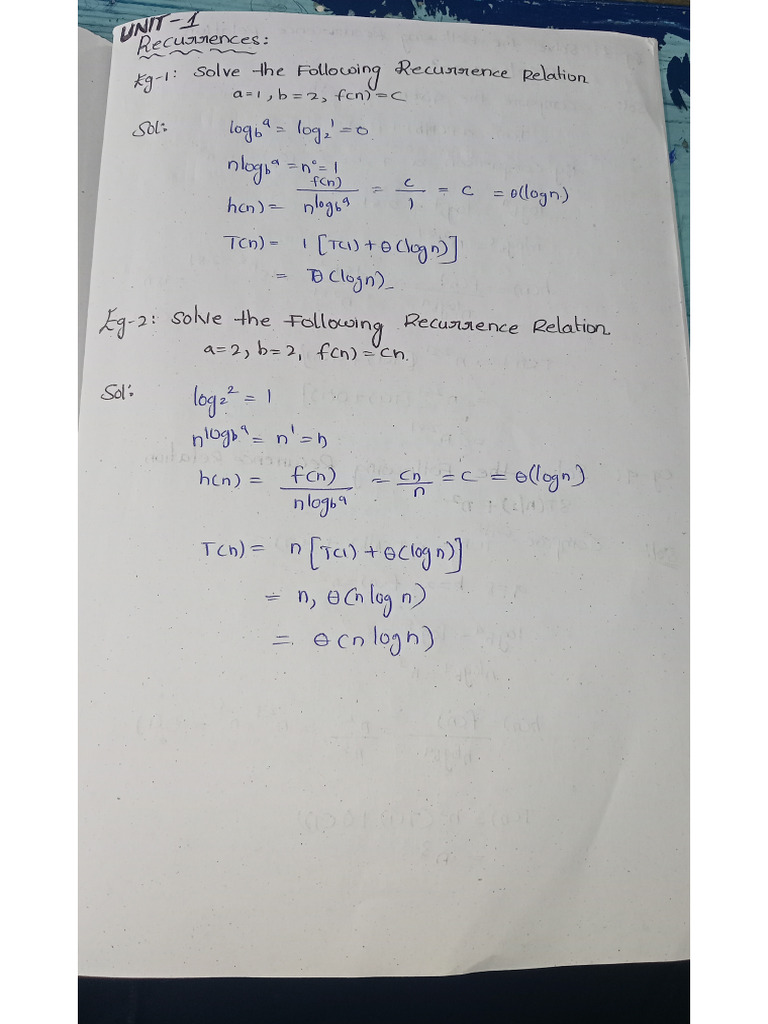 UNIT-1
Recurrences:
Eg-1: Solve the Following Recurrence Relation
a=1, b=2, f(n)=C
Sol: log_b^a = log_2^1 = 0
nlog_b^a = n^0 = 1
h(n) = f(n)/n^log_b^a = C/1 = C = θ(logn)
T(n) = 1 [T(1) + θ(logn)]
= θ(logn)
Eg-2: Solve the Following Recurrence Relation
a=2, b=2, f(n)=Cn.
Sol: log_2^2 = 1
n^log_b^a = n^1 = n
h(n) = f(n)/nlog_b^a = Cn/n = C = θ(logn)
T(n) = n [T(1) + θ(logn)]
= n, θ(n log n)
= θ(n logn)